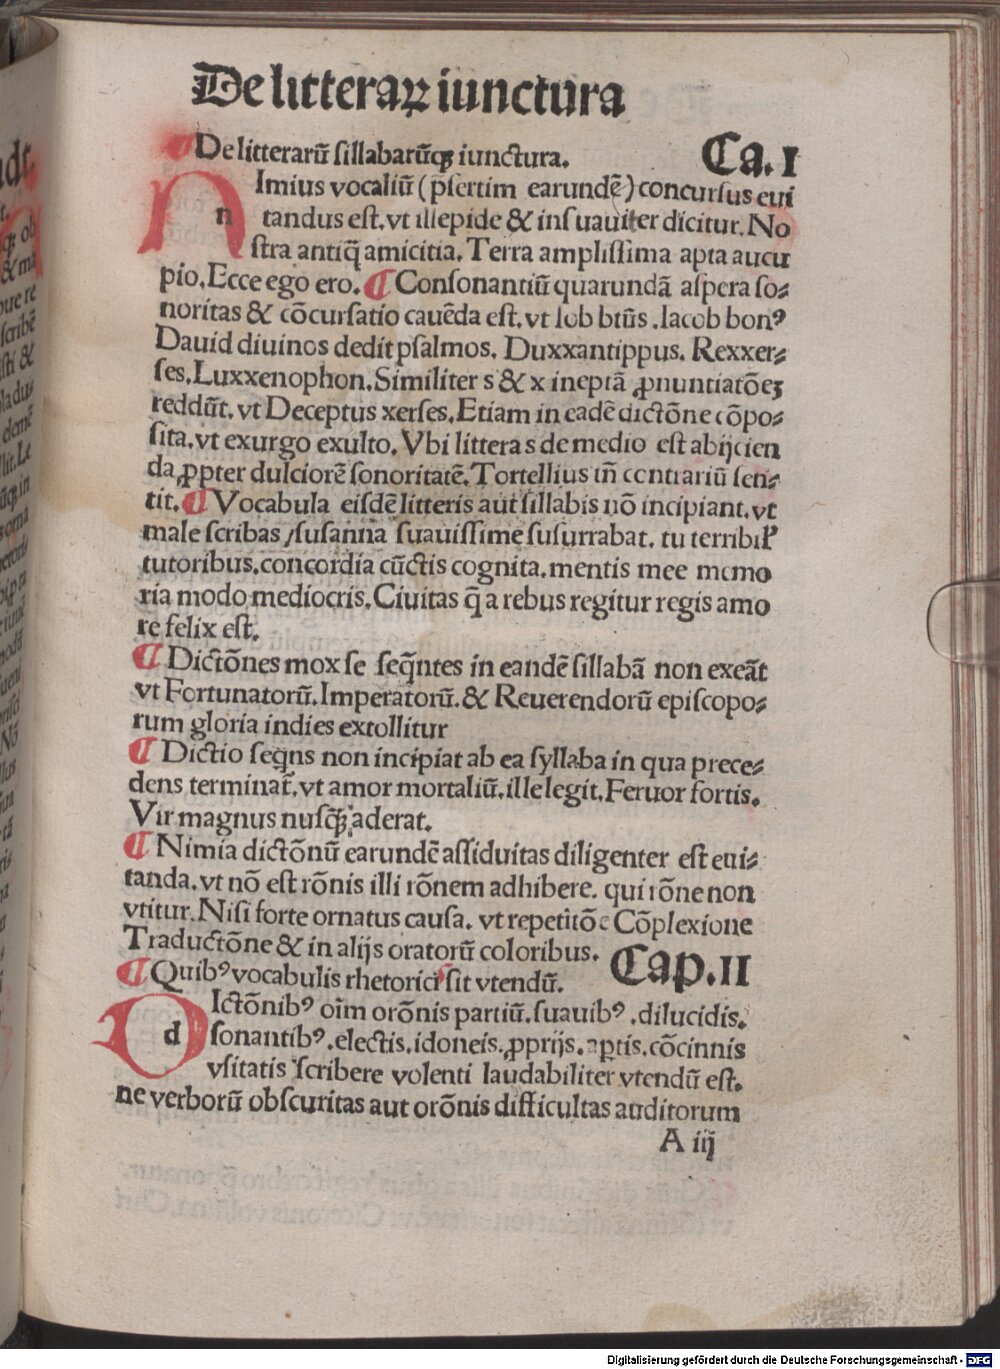 De litteraꝝ iunctura
De litterarū sillabarūqꝫ iunctura. Ca. I
Nimius vocaliū (pſertim earundē) concurſus eui
tandus eſt. vt illepide & inſuauiter dicitur. No
ſtra antiq̄ amicitia. Terra ampliſſima apta aucu
pio. Ecce ego ero. ¶ Conſonantiū quarundā aſpera ſo⸗
noritas & cōcurſatio cauēda eſt. vt Iob btūs. Iacob bonꝰ
Dauid diuinos dedit pſalmos. Duxxantippus. Rexxer⸗
ſes. Luxxenophon. Similiter s & x ineptā ꝓnuntiatōeꝫ
reddūt. vt Deceptus xerſes. Etiam in eadē dictōne cōpo⸗
ſita. vt exurgo exulto. Vbi littera s de medio eſt abijcien
da ꝓpter dulciorē ſonoritatē. Tortellius tn̄ contrariū ſen⸗
tit. ¶ Vocabula eiſdē litteris aut ſillabis nō incipiant. vt
male ſcribas / ſuſanna ſuauiſſime ſuſurrabat. tu terribil̕
tutoribus. concordia cūctis cognita. mentis mee memo
ria modo mediocris. Ciuitas q̄ a rebus regitur regis amo
re felix eſt.
¶ Dictōnes mox ſe ſeq̄ntes in eandē ſillabā non exeāt
vt Fortunatorū. Imperatorū. & Reuerendorū epiſcopo⸗
rum gloria indies extollitur
¶ Dictio ſeq̄ns non incipiat ab ea ſyllaba in qua prece⸗
dens terminat̄. vt amor mortaliū. ille legit. Feruor fortis.
Vir magnus nuſq̄ꝫ aderat.
¶ Nimia dictōnū earundē aſſiduitas diligenter eſt eui⸗
tanda. vt nō eſt rōnis illi rōnem adhibere. qui rōne non
vtitur. Niſi forte ornatus cauſa. vt repetitōe Cōplexione
Traductōne & in alijs oratorū coloribus. Cap. II
¶ Quibꝰ vocabulis rhetorici ſit vtendū.
dIctōnibꝰ oīm orōnis partiū. ſuauibꝰ. dilucidis.
ſonantibꝰ. electis. idoneis. ꝓprijs. aptis. cōcinnis
vſitatis ſcribere volenti laudabiliter vtendū eſt.
ne verborū obſcuritas aut orōnis difficultas auditorum
A iij
Digitalisierung gefördert durch die Deutsche Forschungsgemeinschaft - DFG